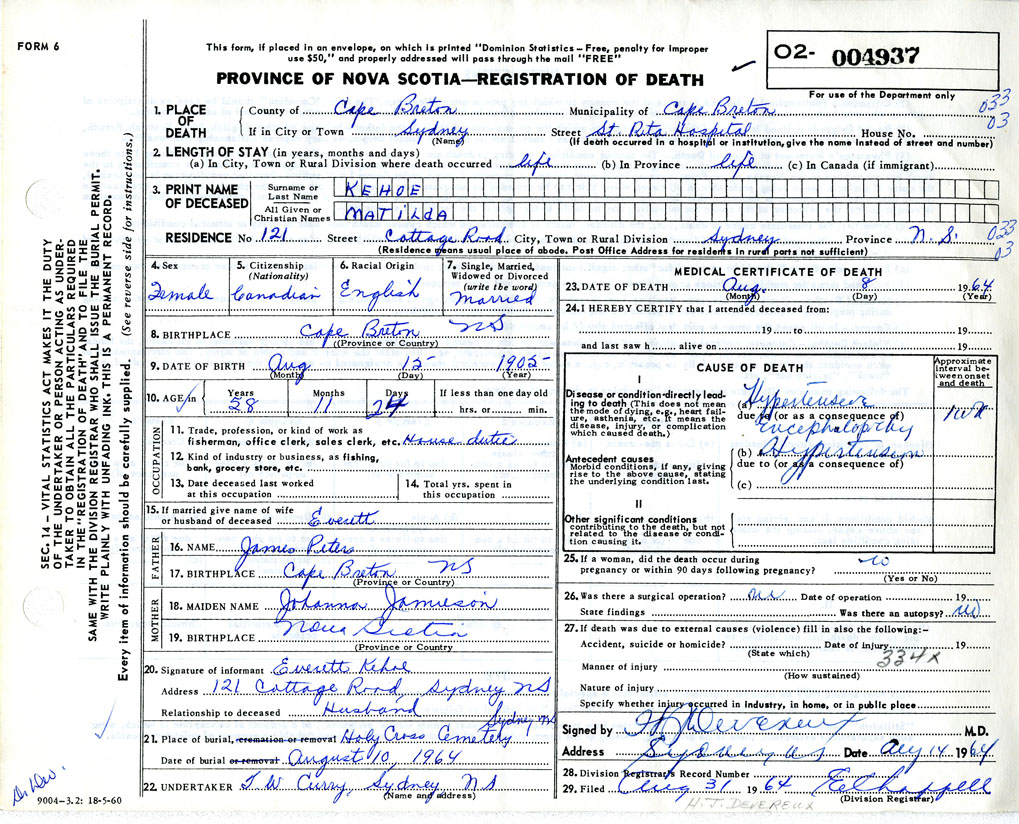 FORM 6
This form, if placed in an envelope, on which is printed "Dominion Statistics – Free, penalty for improper
use $50," and properly addressed will pass through the mail "FREE"
PROVINCE OF NOVA SCOTIA—REGISTRATION OF DEATH
O2- 004937
For use of the Department only
SEC. 14 – VITAL STATISTICS ACT MAKES IT THE DUTY
OF THE UNDERTAKER OR PERSON ACTING AS UNDER-
TAKER TO OBTAIN ALL THE PARTICULARS REQUIRED
IN THE "REGISTRATION OF DEATH" AND TO FILE THE
SAME WITH THE DIVISION REGISTRAR WHO SHALL ISSUE THE BURIAL PERMIT.
WRITE PLAINLY WITH UNFADING INK. THIS IS A PERMANENT RECORD.
Every item of information should be carefully supplied. (See reverse side for instructions.)
1. PLACE OF DEATH
County of Cape Breton Municipality of Cape Breton 033
03
If in City or Town Sydney Street St. Rita Hospital House No.
(Name) (If death occurred in a hospital or institution, give the name instead of street and number)
2. LENGTH OF STAY (in years, months and days)
(a) In City, Town or Rural Division where death occurred life (b) In Province life (c) In Canada (if immigrant)
3. PRINT NAME OF DECEASED
Surname or Last Name KEHOE
All Given or Christian Names MATILDA
RESIDENCE No 121 Street Cottage Road City, Town or Rural Division Sydney Province N.S. 033
03
(Residence means usual place of abode. Post Office Address for residents in rural parts not sufficient)
4. Sex Female
5. Citizenship (Nationality) Canadian
6. Racial Origin English
7. Single, Married, Widowed or Divorced (write the word) Married
8. BIRTHPLACE Cape Breton NS
(Province or Country)
9. DATE OF BIRTH Aug 15 1905
(Month) (Day) (Year)
10. AGE in Years 58 Months 11 Days 24 If less than one day old
hrs. or min.
OCCUPATION
11. Trade, profession, or kind of work as
fisherman, office clerk, sales clerk, etc. House dutie
12. Kind of industry or business, as fishing,
bank, grocery store, etc.
13. Date deceased last worked
at this occupation
14. Total yrs. spent in
this occupation
15. If married give name of wife
or husband of deceased Everett
FATHER
16. NAME James Peters
17. BIRTHPLACE Cape Breton NS
(Province or Country)
MOTHER
18. MAIDEN NAME Johanna Jamieson
19. BIRTHPLACE Nova Scotia
(Province or Country)
20. Signature of informant Everett Kehoe
Address 121 Cottage Road, Sydney NS
Relationship to deceased Husband
Sydney NS
21. Place of burial, cremation or removal Holy Cross Cemetery
Date of burial or removal August 10, 1964
22. UNDERTAKER T. W. Curry, Sydney NS
(Name and address)
9004-3.2: 18-5-60
MEDICAL CERTIFICATE OF DEATH
23. DATE OF DEATH Aug. 8 1964
(Month) (Day) (Year)
24. I HEREBY CERTIFY that I attended deceased from:
19 to 19
and last saw h alive on 19
CAUSE OF DEATH
Approximate interval between onset and death
I
Disease or condition directly leading to death (This does not mean the mode of dying, e.g., heart failure, asthenia, etc. It means the disease, injury, or complication which caused death.)
(a) Hypertensive
due to (or as a consequence of)
Encephalopathy
Antecedent causes
Morbid conditions, if any, giving rise to the above cause, stating the underlying condition last.
(b) Hypertension
due to (or as a consequence of)
(c)
II
Other significant conditions
contributing to the death, but not related to the disease or condition causing it.
25. If a woman, did the death occur during
pregnancy or within 90 days following pregnancy? no
(Yes or No)
26. Was there a surgical operation? no Date of operation 19
State findings Was there an autopsy? no
27. If death was due to external causes (violence) fill in also the following:–
Accident, suicide or homicide? Date of injury 19
(State which) 334x
Manner of injury
(How sustained)
Nature of injury
Specify whether injury occurred in Industry, in home, or in public place
Signed by H J Devereux M.D.
Address Sydney NS Date Aug 14 1964
28. Division Registrar's Record Number
29. Filed Aug 31 1964 E Chappell
(Division Registrar)
H. J. DEVEREUX